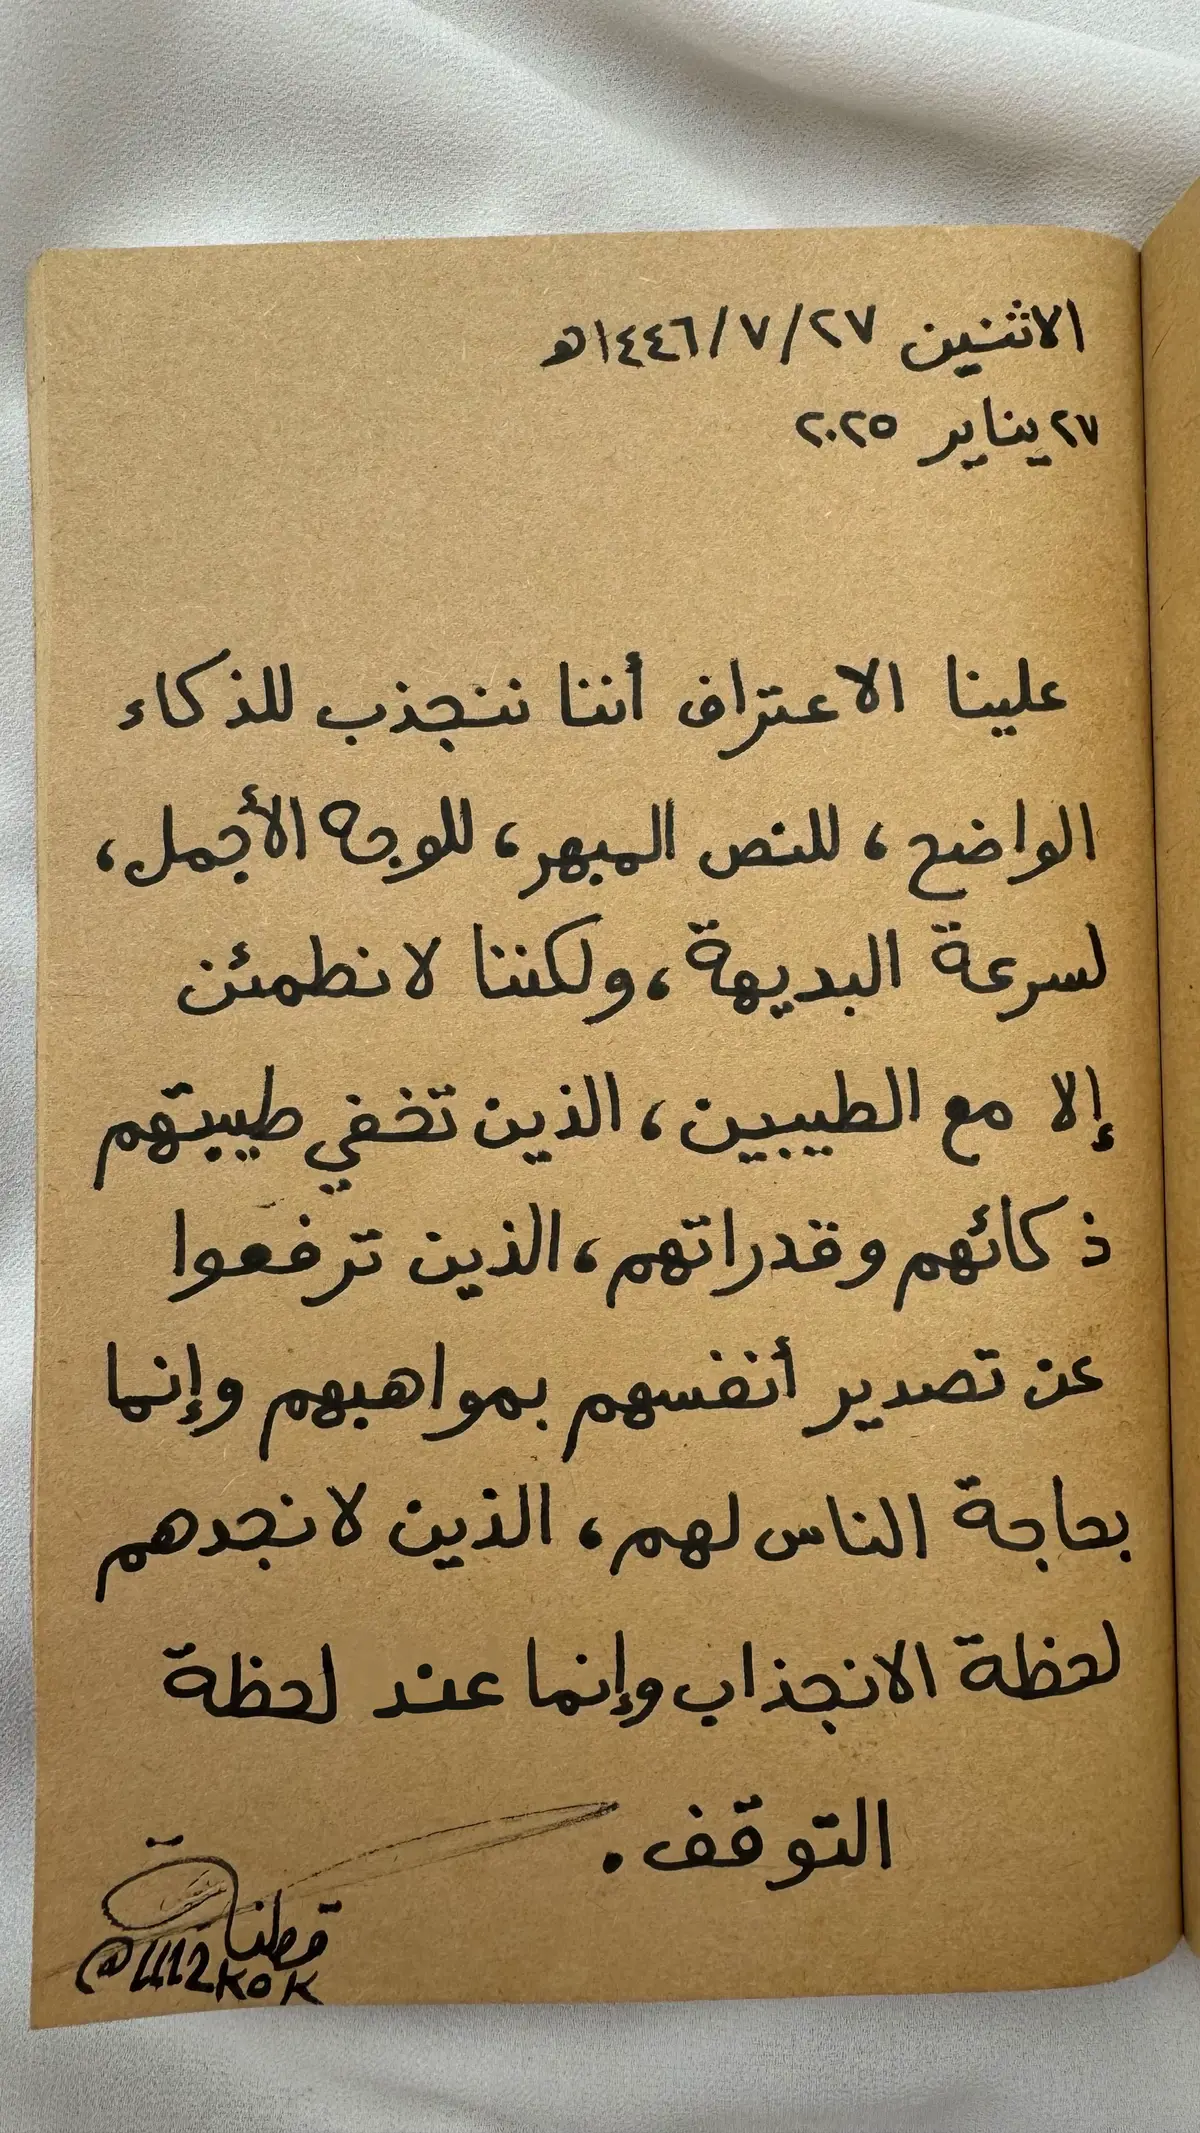 الاثنين ٢٧/٧/١٤٤٦هـ
٢٧ يناير ٢٠٢٥
علينا الاعتراف أننا ننجذب للذكاء
الواضح، للنص المبهر، للوجه الأجمل،
لسرعة البديهة، ولكننا لا نطمئن
إلا مع الطيبين، الذين تخفي طيبتهم
ذكائهم وقدراتهم، الذين ترفعوا
عن تصدير أنفسهم بمواهبهم وإنما
بحاجة الناس لهم، الذين لا نجدهم
لحظة الانجذاب وإنما عند لحظة
التوقف.